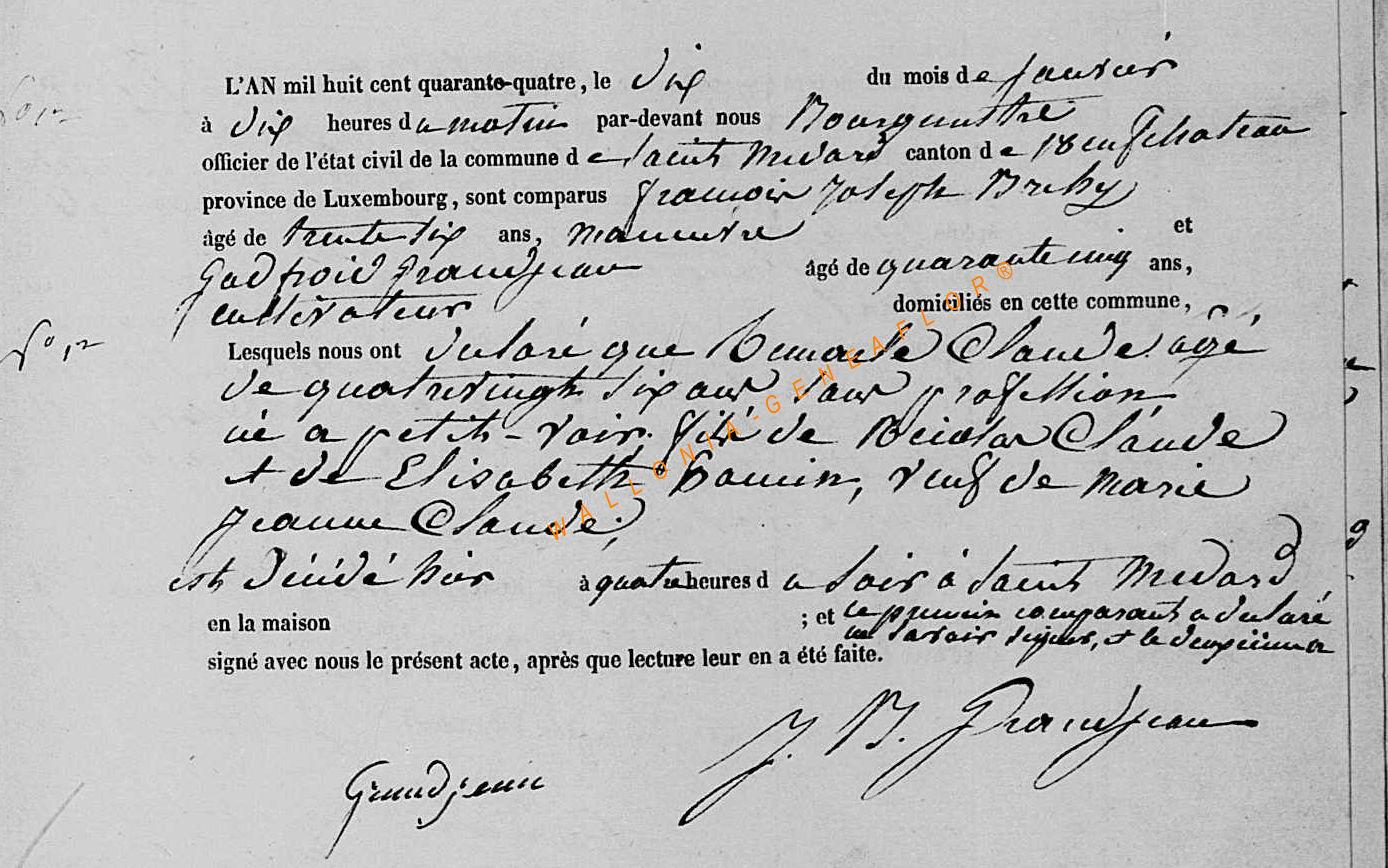 L'AN mil huit cent quarante-quatre, le dix du mois de janvier
à dix heures du matin par-devant nous Bourguemestre
officier de l'état civil de la commune de Saint Medard canton de Neufchateau
province de Luxembourg, sont comparus françois Joseph
âgé de trente six ans, manœuvre et
Godfroid Grandjean âgé de quarante cinq ans,
cultivateur domiciliés en cette commune,
N° 12
Lesquels nous ont déclaré que Claude agé
de quatrevingt six ans sans profession
né a petit-voir fils de Nicolas Claude
et de Elisabeth veuf de Marie
Jeanne Claude;
est décédé hier à quatre heures du soir à Saint Medard
en la maison ; et le premier comparant a déclaré
ne savoir signer, et le deuxieme a
signé avec nous le présent acte, après que lecture leur en a été faite.
J. B. Grandjean
Grandjean
WALLONIA-GENEAFLOR®